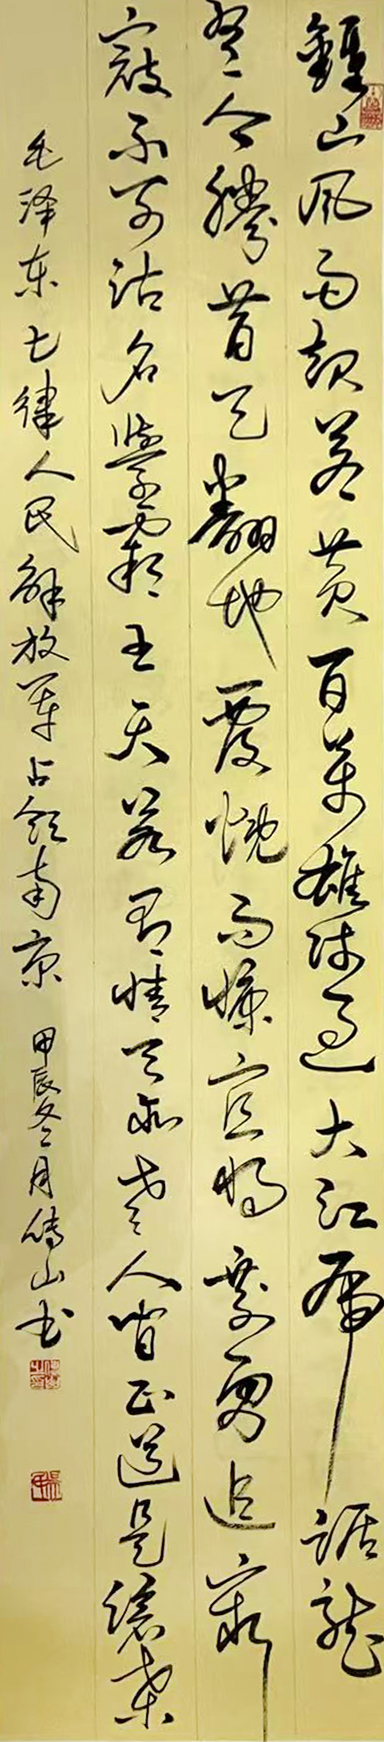 鍾山风雨起苍黄百万雄师过大江虎踞龙
盘今勝昔天翻地覆慨而慷宜将剩勇追窮
寇不可沽名學霸王天若有情天亦老人间正道是滄桑
毛泽东七律人民解放军占领南京 甲辰冬月山书